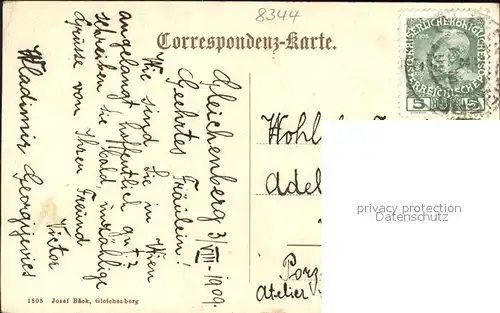 8344
Correspondenz-Karte.
KAISERLICHE KÖNIGLICHE
ÖSTERREICHISCHE
5 5
Gleichenberg 3/VIII. 1909.
Geehrtes Fräulein!
Wie sind Sie in Wien
angelangt, hoffentlich gut?
schreiben Sie bald, unzählige
Grüsse von Ihren Freund
Victor
Wladimir Georgijevics
Wohl
Adel
Porz
Atelier
privacy protection
Datenschutz
1805 Josef Bäck, Gleichenberg